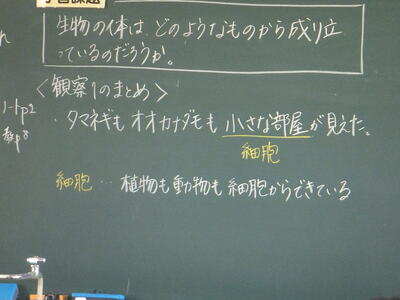 学習課題
生物の体は、どのようなものから成り立
っているのだろうか。
<観察1のまとめ>
・タマネギも オオカナダモも 小さな部屋が見えた。
細胞
細胞…植物も動物も細胞からできている
れ
ノートp2
教p8